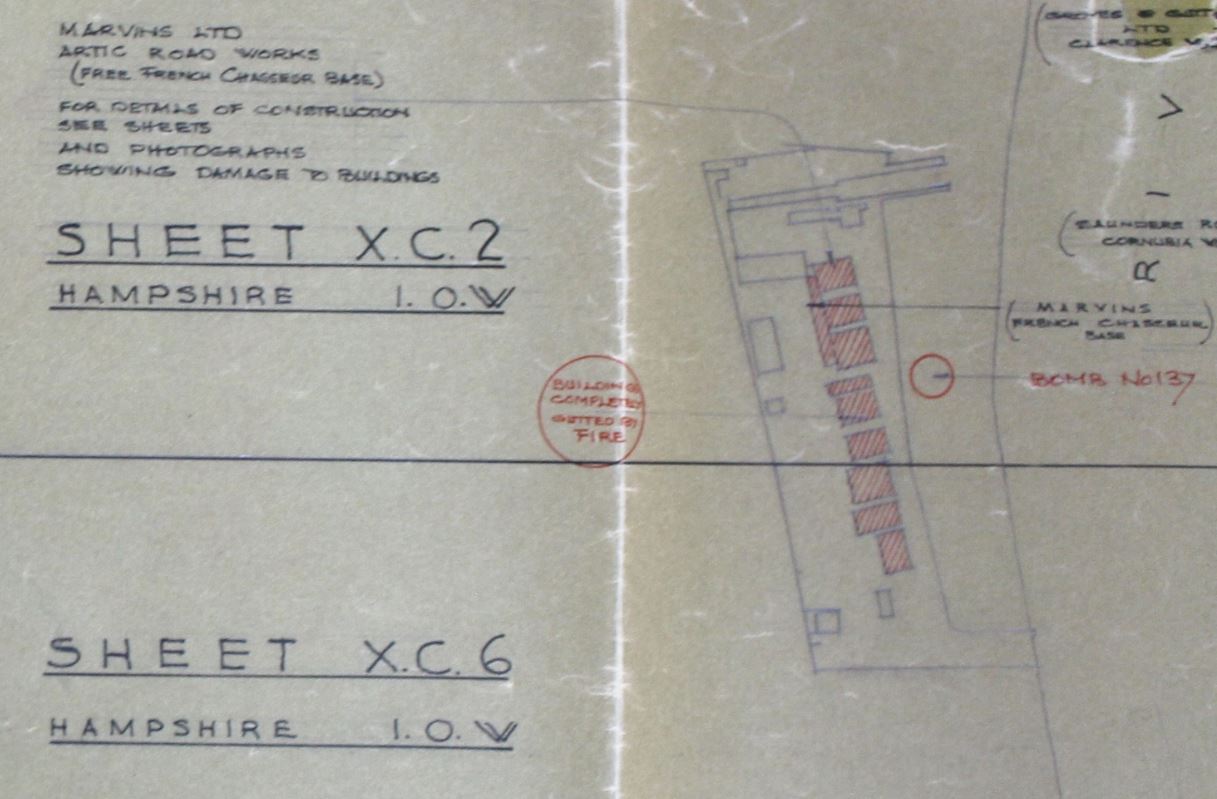 MARVINS LTD
ARTIC ROAD WORKS
(FREE FRENCH CHASSEUR BASE)
FOR DETAILS OF CONSTRUCTION
SEE SHEETS
AND PHOTOGRAPHS
SHOWING DAMAGE TO BUILDINGS
SHEET X.C.2
HAMPSHIRE I.O.W
BUILDINGS
COMPLETELY
GUTTED BY
FIRE
SHEET X.C.6
HAMPSHIRE I.O.W
(GROVES &
LTD
CLARENCE
V
I
(SAUNDERS
CORNUBIA
R
(MARVINS
FRENCH CHASSEUR)
BASE
BOMB No 137